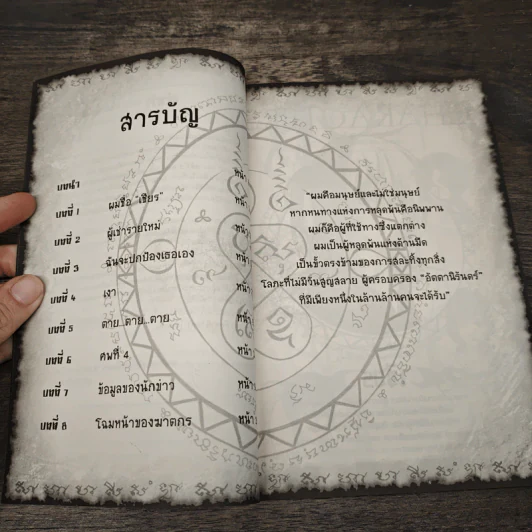 สารบัญ
บทนำ หน้า
บทที่ 1 ผมชื่อ "เธียร" หน้า
บทที่ 2 ผู้เช่ารายใหม่ หน้า
บทที่ 3 ฉันจะปกป้องเธอเอง หน้า
บทที่ 4 เงา หน้า
บทที่ 5 ตาย...ตาย...ตาย หน้า
บทที่ 6 ศพที่ 4 หน้า
บทที่ 7 ข้อมูลของนักข่าว หน้า
บทที่ 8 โฉมหน้าของฆาตกร หน้า
"ผมคือมนุษย์และไม่ใช่มนุษย์
หากหนทางแห่งการหลุดพ้นคือนิพพาน
ผมก็คือผู้ที่ใช้ทางซึ่งแตกต่าง
ผมเป็นผู้หลุดพ้นแห่งด้านมืด
เป็นขั้วตรงข้ามของการละทิ้งทุกสิ่ง
โลภะที่ไม่มีวันสูญสลาย ผู้ครอบครอง "อัตตานิรันดร์"
ที่มีเพียงหนึ่งในล้านล้านคนจะได้รับ"